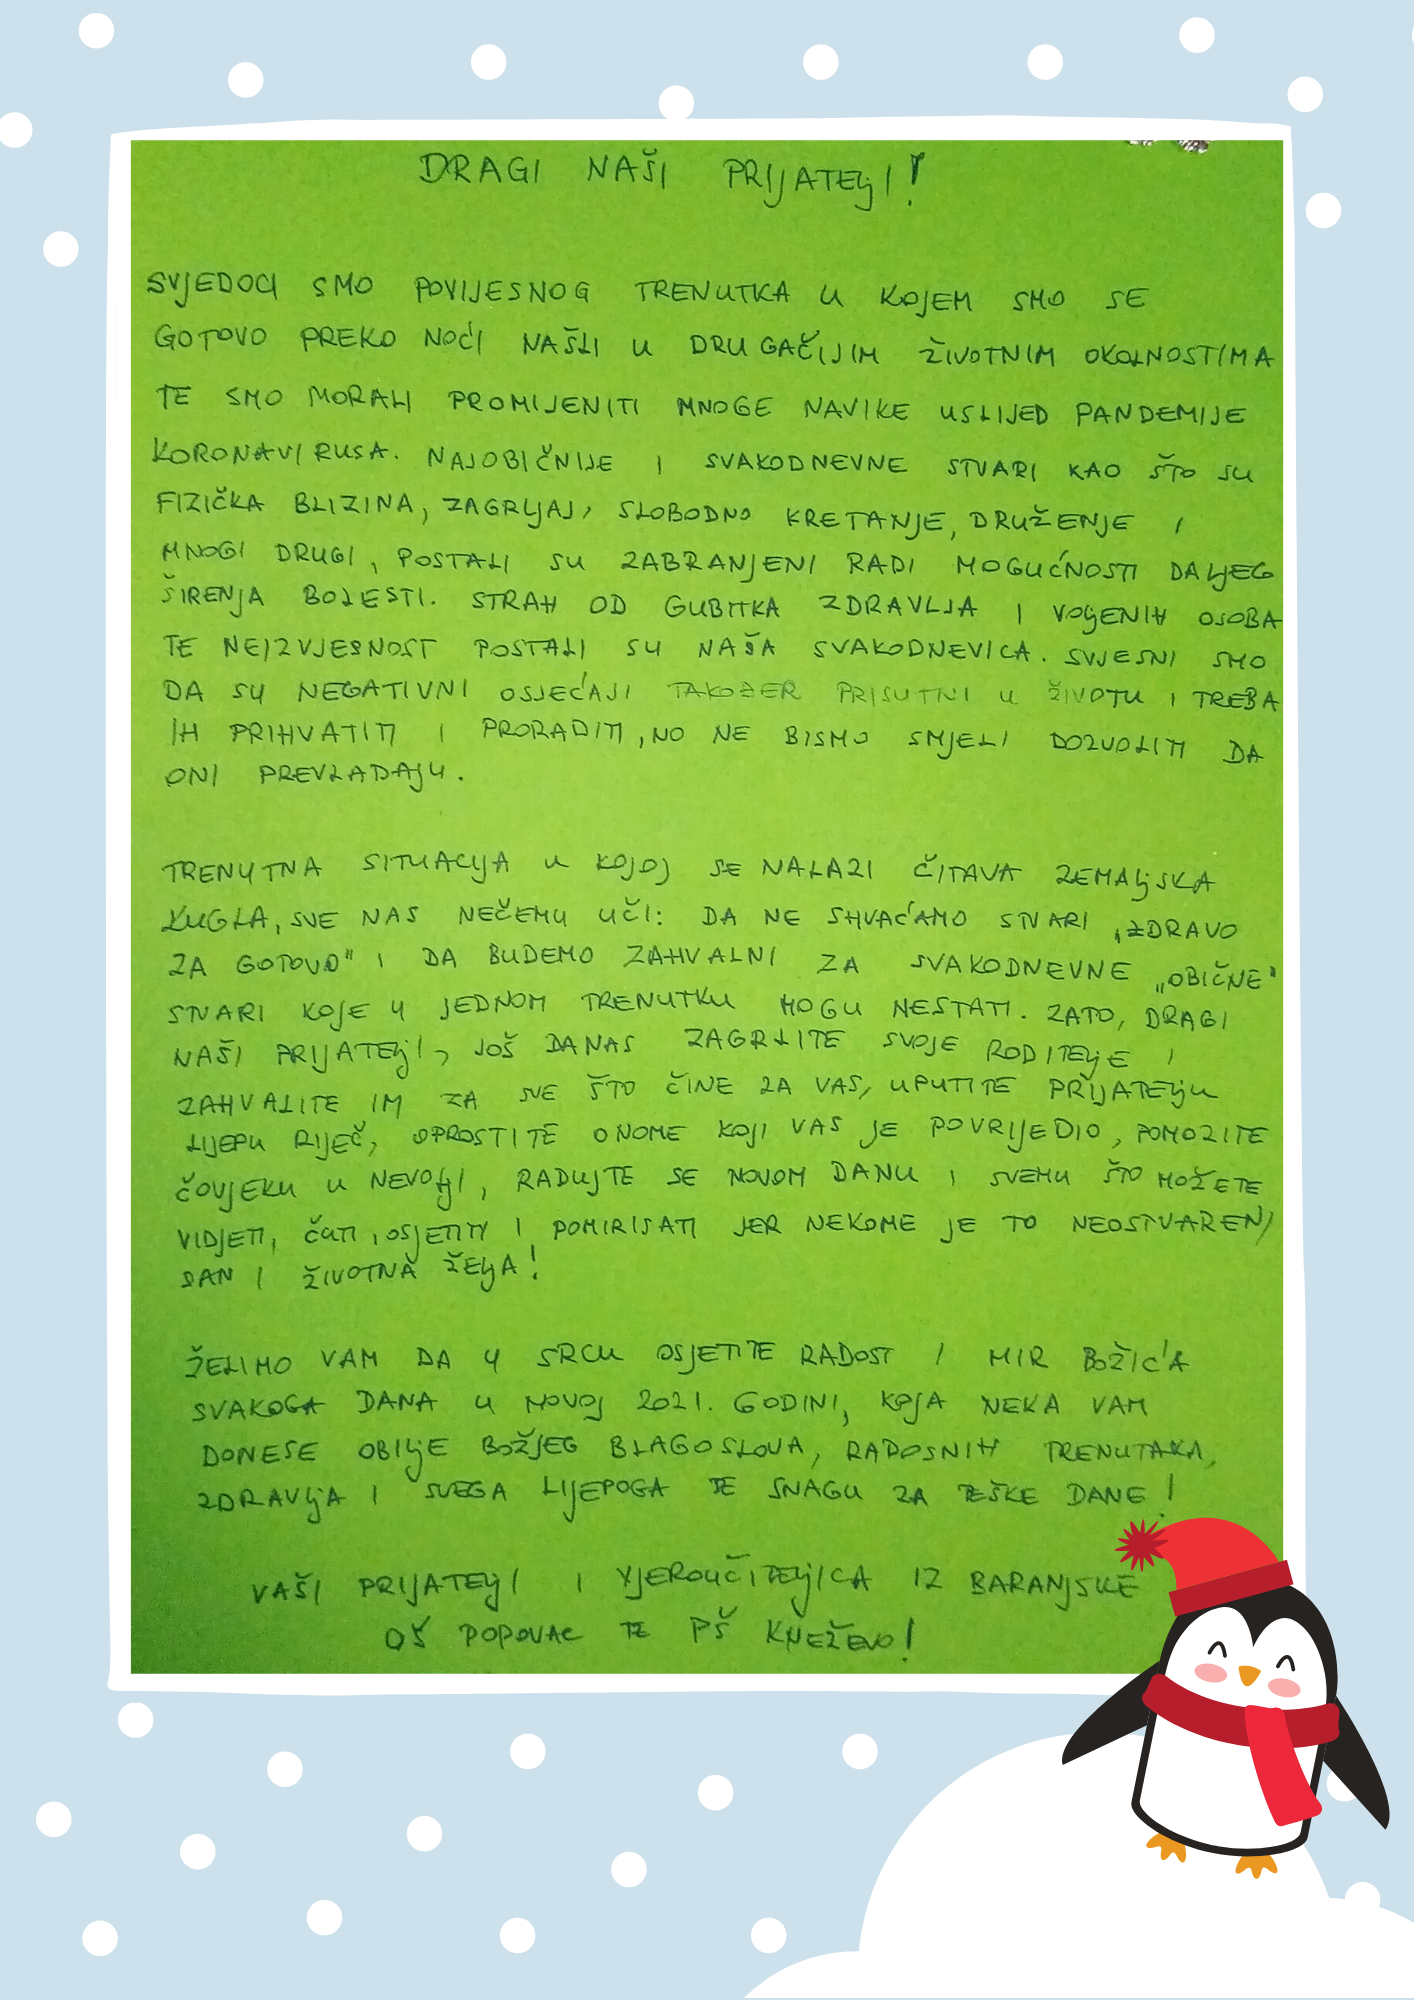 DRAGI NAŠI PRIJATELJI!
SVJEDOCI SMO POVIJESNOG TRENUTKA U KOJEM SMO SE
GOTOVO PREKO NOĆI NAŠLI U DRUGAČIJIM ŽIVOTNIM OKOLNOSTIMA
TE SMO MORALI PROMIJENITI MNOGE NAVIKE USLIJED PANDEMIJE
KORONAVIRUSA. NAJOBIČNIJE I SVAKODNEVNE STVARI KAO ŠTO SU
FIZIČKA BLIZINA, ZAGRLJAJ, SLOBODNO KRETANJE, DRUŽENJE I
MNOGI DRUGI, POSTALI SU ZABRANJENI RADI MOGUĆNOSTI DALJEG
ŠIRENJA BOLESTI. STRAH OD GUBITKA ZDRAVLJA I VOLJENIH OSOBA
TE NEIZVJESNOST POSTALI SU NAŠA SVAKODNEVICA. SVJESNI SMO
DA SU NEGATIVNI OSJEĆAJI TAKOĐER PRISUTNI U ŽIVOTU I TREBA
IH PRIHVATITI I PRORADITI, NO NE BISMO SMJELI DOZVOLITI DA
ONI PREVLADAJU.
TRENUTNA SITUACIJA U KOJOJ SE NALAZI ČITAVA ZEMALJSKA
KUGLA, SVE NAS NEČEMU UČI: DA NE SHVAĆAMO STVARI „ZDRAVO
ZA GOTOVO" I DA BUDEMO ZAHVALNI ZA SVAKODNEVNE „OBIČNE"
STVARI KOJE U JEDNOM TRENUTKU MOGU NESTATI. ZATO, DRAGI
NAŠI PRIJATELJI, JOŠ DANAS ZAGRLITE SVOJE RODITELJE I
ZAHVALITE IM ZA SVE ŠTO ČINE ZA VAS, UPUTITE PRIJATELJU
LIJEPU RIJEČ, OPROSTITE ONOME KOJI VAS JE POVRIJEDIO, POMOZITE
ČOVJEKU U NEVOLJI, RADUJTE SE NOVOM DANU I SVEMU ŠTO MOŽETE
VIDJETI, ČUTI, OSJETITI I POMIRISATI JER NEKOME JE TO NEOSTVARENI
SAN I ŽIVOTNA ŽELJA!
ŽELIMO VAM DA U SRCU OSJETITE RADOST I MIR BOŽIĆA
SVAKOGA DANA U NOVOJ 2021. GODINI, KOJA NEKA VAM
DONESE OBILJE BOŽJEG BLAGOSLOVA, RADOSNIH TRENUTAKA,
ZDRAVLJA I SVEGA LIJEPOGA TE SNAGU ZA TEŠKE DANE!
VAŠI PRIJATELJI I VJEROUČITELJICA IZ BARANJSKE
OŠ POPOVAC TE PŠ KNEŽEVO!